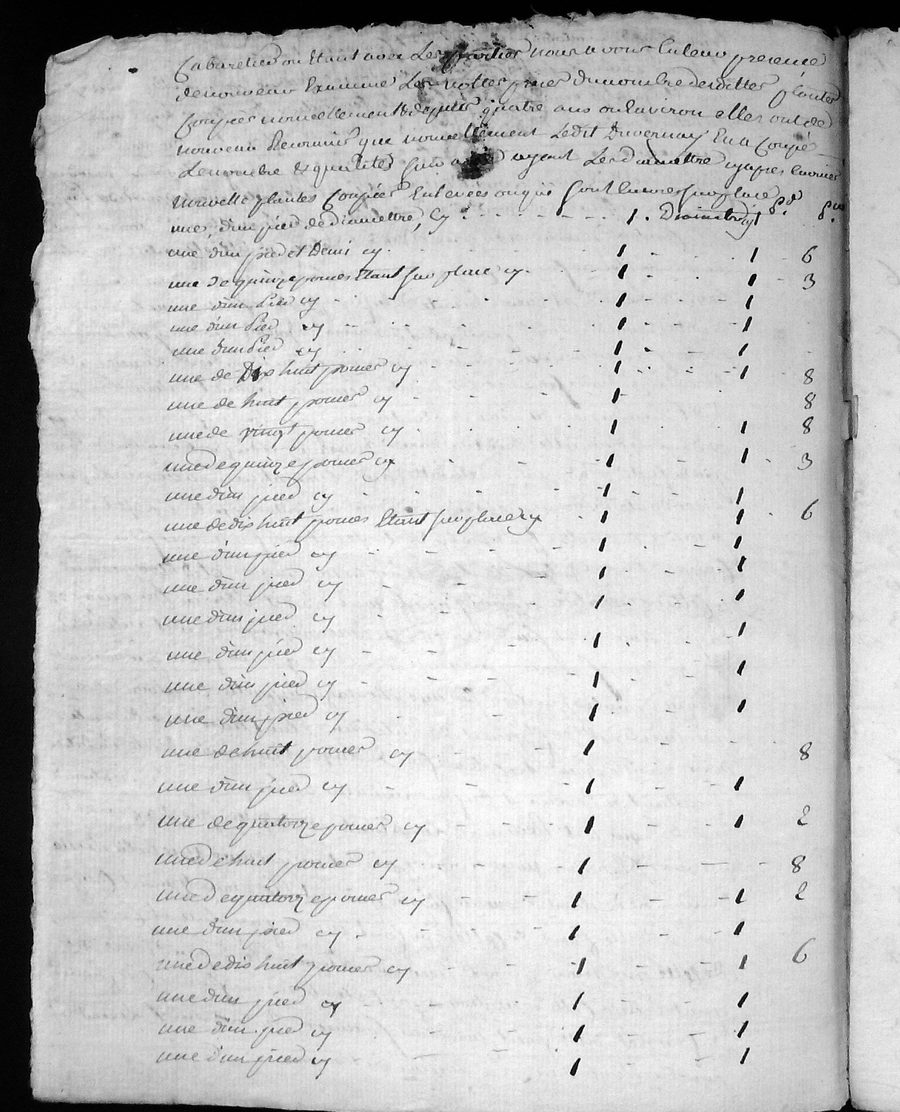 Cabaretier ou Etant avec Les parties nous avons En leur presence
de nouveau Examiné Les nottes prises du nombre desdittes plantes
Coupées nouvellement depuis quatre ans ou Environ elles ont de
nouveau Reconnu que nouvellement Ledit Duvernay En a Coupé
Le nombre & quantités ayant Les diamettre cy apres
nouvelle plantes Coupées Enlevées ou qui sont Encore sur place
une d'un pied de diamettre, Cy 1. Diametre 1 pd p.ces
une d'un pied et Demi cy 1 1 6
une de quinze pouces Etant sur place cy 1 1 3
une d'un Pied cy 1 1
une d'un Pied cy 1 1
une d'un Pied cy 1 1
une de Dix huit pouces cy 1 1 8
une de huit pouces cy 1 8
une de vingt pouces cy 1 1 8
une de quinze pouces cy 1 1 3
une d'un pied cy 1 1
une de dix huit pouces Etant sur place cy 1 1 6
une d'un pied cy 1 1
une d'un pied cy 1 1
une d'un pied cy 1 1
une d'un pied cy 1 1
une d'un pied cy 1 1
une d'un pied cy 1 1
une de huit pouces cy 1 8
une d'un pied cy 1 1
une de quatorze pouces cy 1 1 2
une de huit pouces cy 1 8
une de quatorze pouces cy 1 1 2
une d'un pied cy 1 1
une de dix huit pouces cy 1 1 6
une d'un pied cy 1 1
une d'un pied cy 1 1
une d'un pied cy 1 1